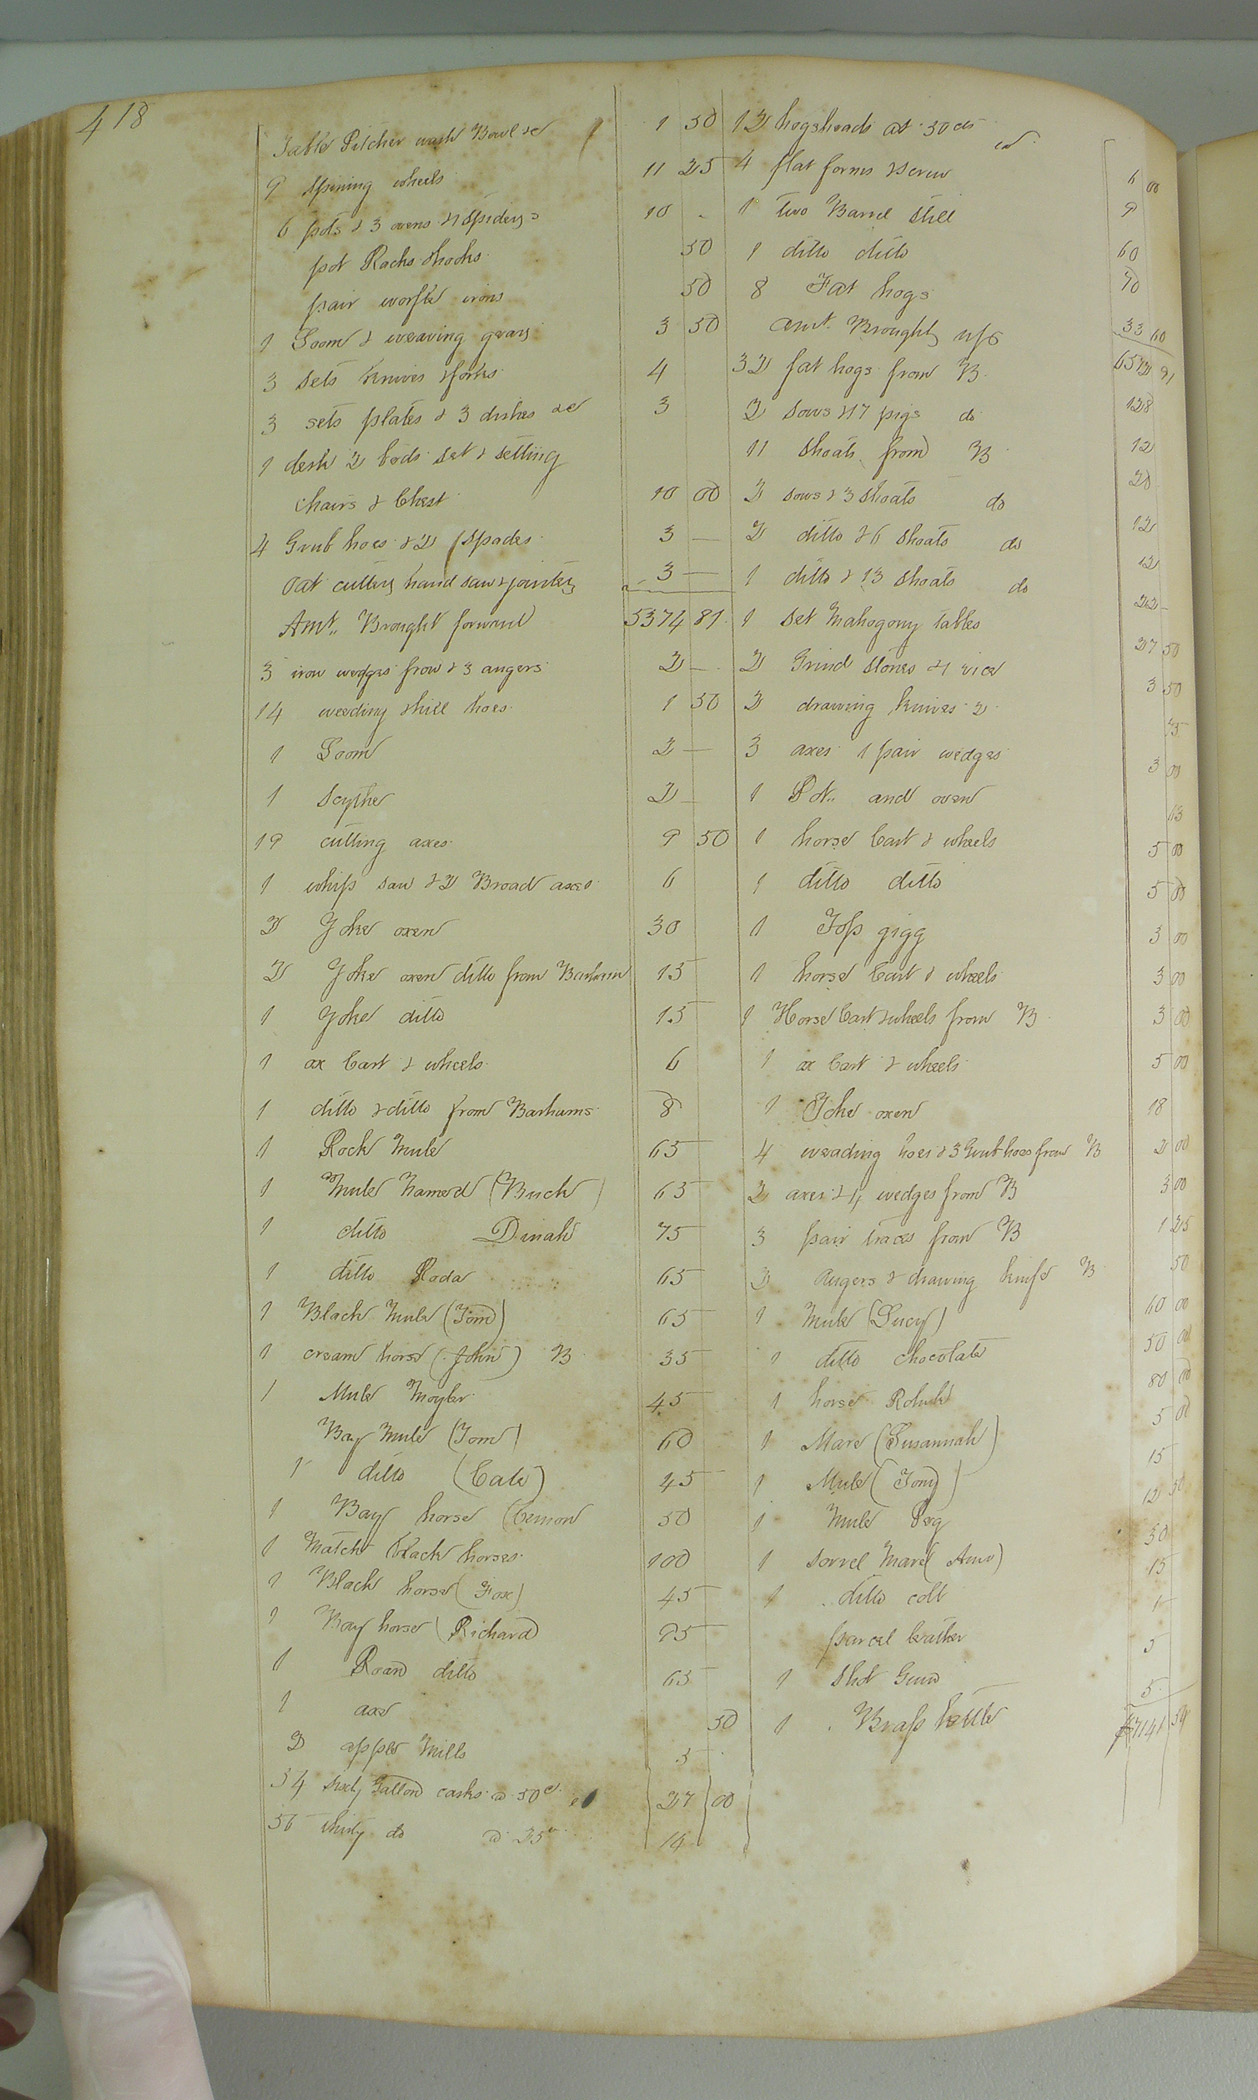 418
Table Pitcher wash Bowl &c 1 50
9 Spining wheels 11 25
6 pots & 3 ovens & 1 Spider 10 -
pot Racks & hooks 50
pair waffle irons 50
1 Loom & weaving gears 3 50
3 sets knives & forks 4
3 sets plates & 3 dishes &c 3
1 desk 2 beds set & setting
chairs & Chest 10 00
4 Grub hoes & 2 Spades 3 —
Oat cutter hand saw & jointer 3 —
Amt. Brought forward 5374 81
3 iron wedges frow & 3 augers 2 —
14 weeding & hill hoes 1 50
1 Loom 2 —
1 Scythe 2 —
19 cutting axes 9 50
1 whip saw & 2 Broad axes 6
2 Yoke oxen 30
2 Yoke oxen ditto from Barhams 15
1 Yoke ditto 15
1 ox Cart & wheels 6
1 ditto & ditto from Barhams 8
1 Rock Mule 65
1 Mule Named (Buck) 65
1 ditto Dinah 75
1 ditto Roda 65
1 Black Mule (Tom) 65
1 cream horse (John) B 35
1 Mule 45
Bay Mule (Tom) 60
1 ditto (Cate) 45
1 Bay horse 50
1 Match black horses 100
1 Black horse (Fox) 45
1 Bay horse (Richard 95
1 Roan ditto 65
1 axe 50
2 apple Mills 5
54 Sixty Gallon casks @ 50 c 27 00
56 thirty do @ 25 c 14
12 hogsheads at 50 cts 6 00
4 flat forms & screw 9
1 two Barrel Still 60
1 ditto ditto 70
8 Fat hogs 33 60
Amt. Brought up 6532 91
32 fat hogs from B 128
2 sows & 17 pigs do 12
11 Shoats from B 20
2 sows & 3 Shoats do 12
2 ditto & 6 Shoats do 12
1 ditto & 13 Shoats do 22 -
1 set Mahogony tables 27 50
2 Grind Stones & 1 vice 3 50
2 drawing knives 75
3 axes 1 pair wedges 3 00
1 Pot and oven
1 horse Cart & wheels 5 00
1 ditto ditto 5 00
1 Top gigg 3 00
1 horse Cart & wheels 3 00
1 Horse Cart & wheels from B 3 00
1 ox Cart & wheels 5 00
1 Yoke oxen 18
4 weading hoes & 3 Grub hoes from B 2 00
2 axes & 4 wedges from B 3 00
3 pair traces from B 1 25
2 Augers & drawing knife B 50
1 Mule (Lucy) 60 00
1 ditto chocolate 50 00
1 horse 80 00
1 Mare (Susannah) 5 00
1 Mule (Tony) 15
1 Mule Peg 12 50
1 sorrel Mare 30
1 ditto colt 15
parcel leather
1 Shot Gun 5
1 Brass kettle 5
$7141 59